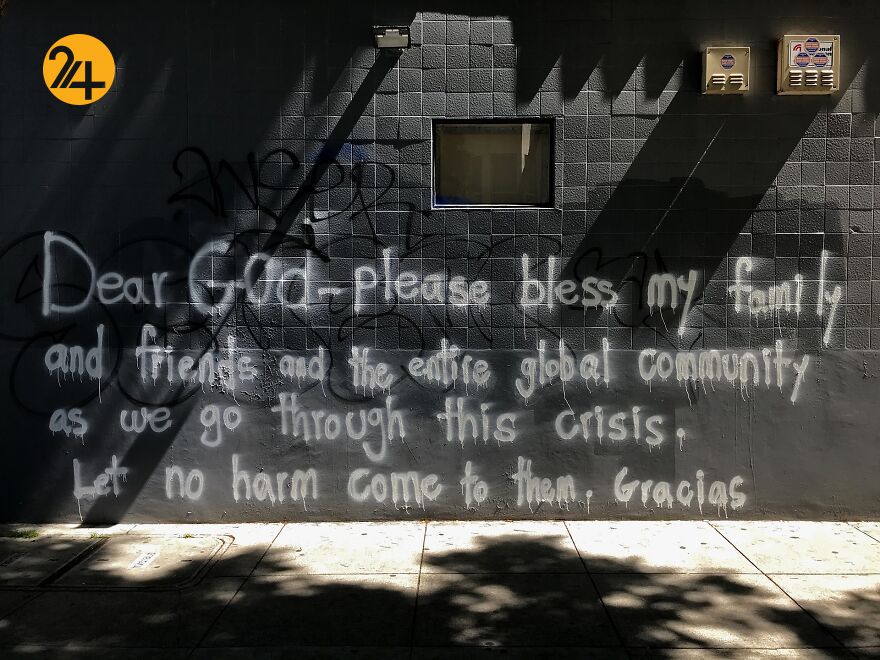 24
Dear God - please bless my family
and friends and the entire global community
as we go through this crisis.
Let no harm come to them. Gracias